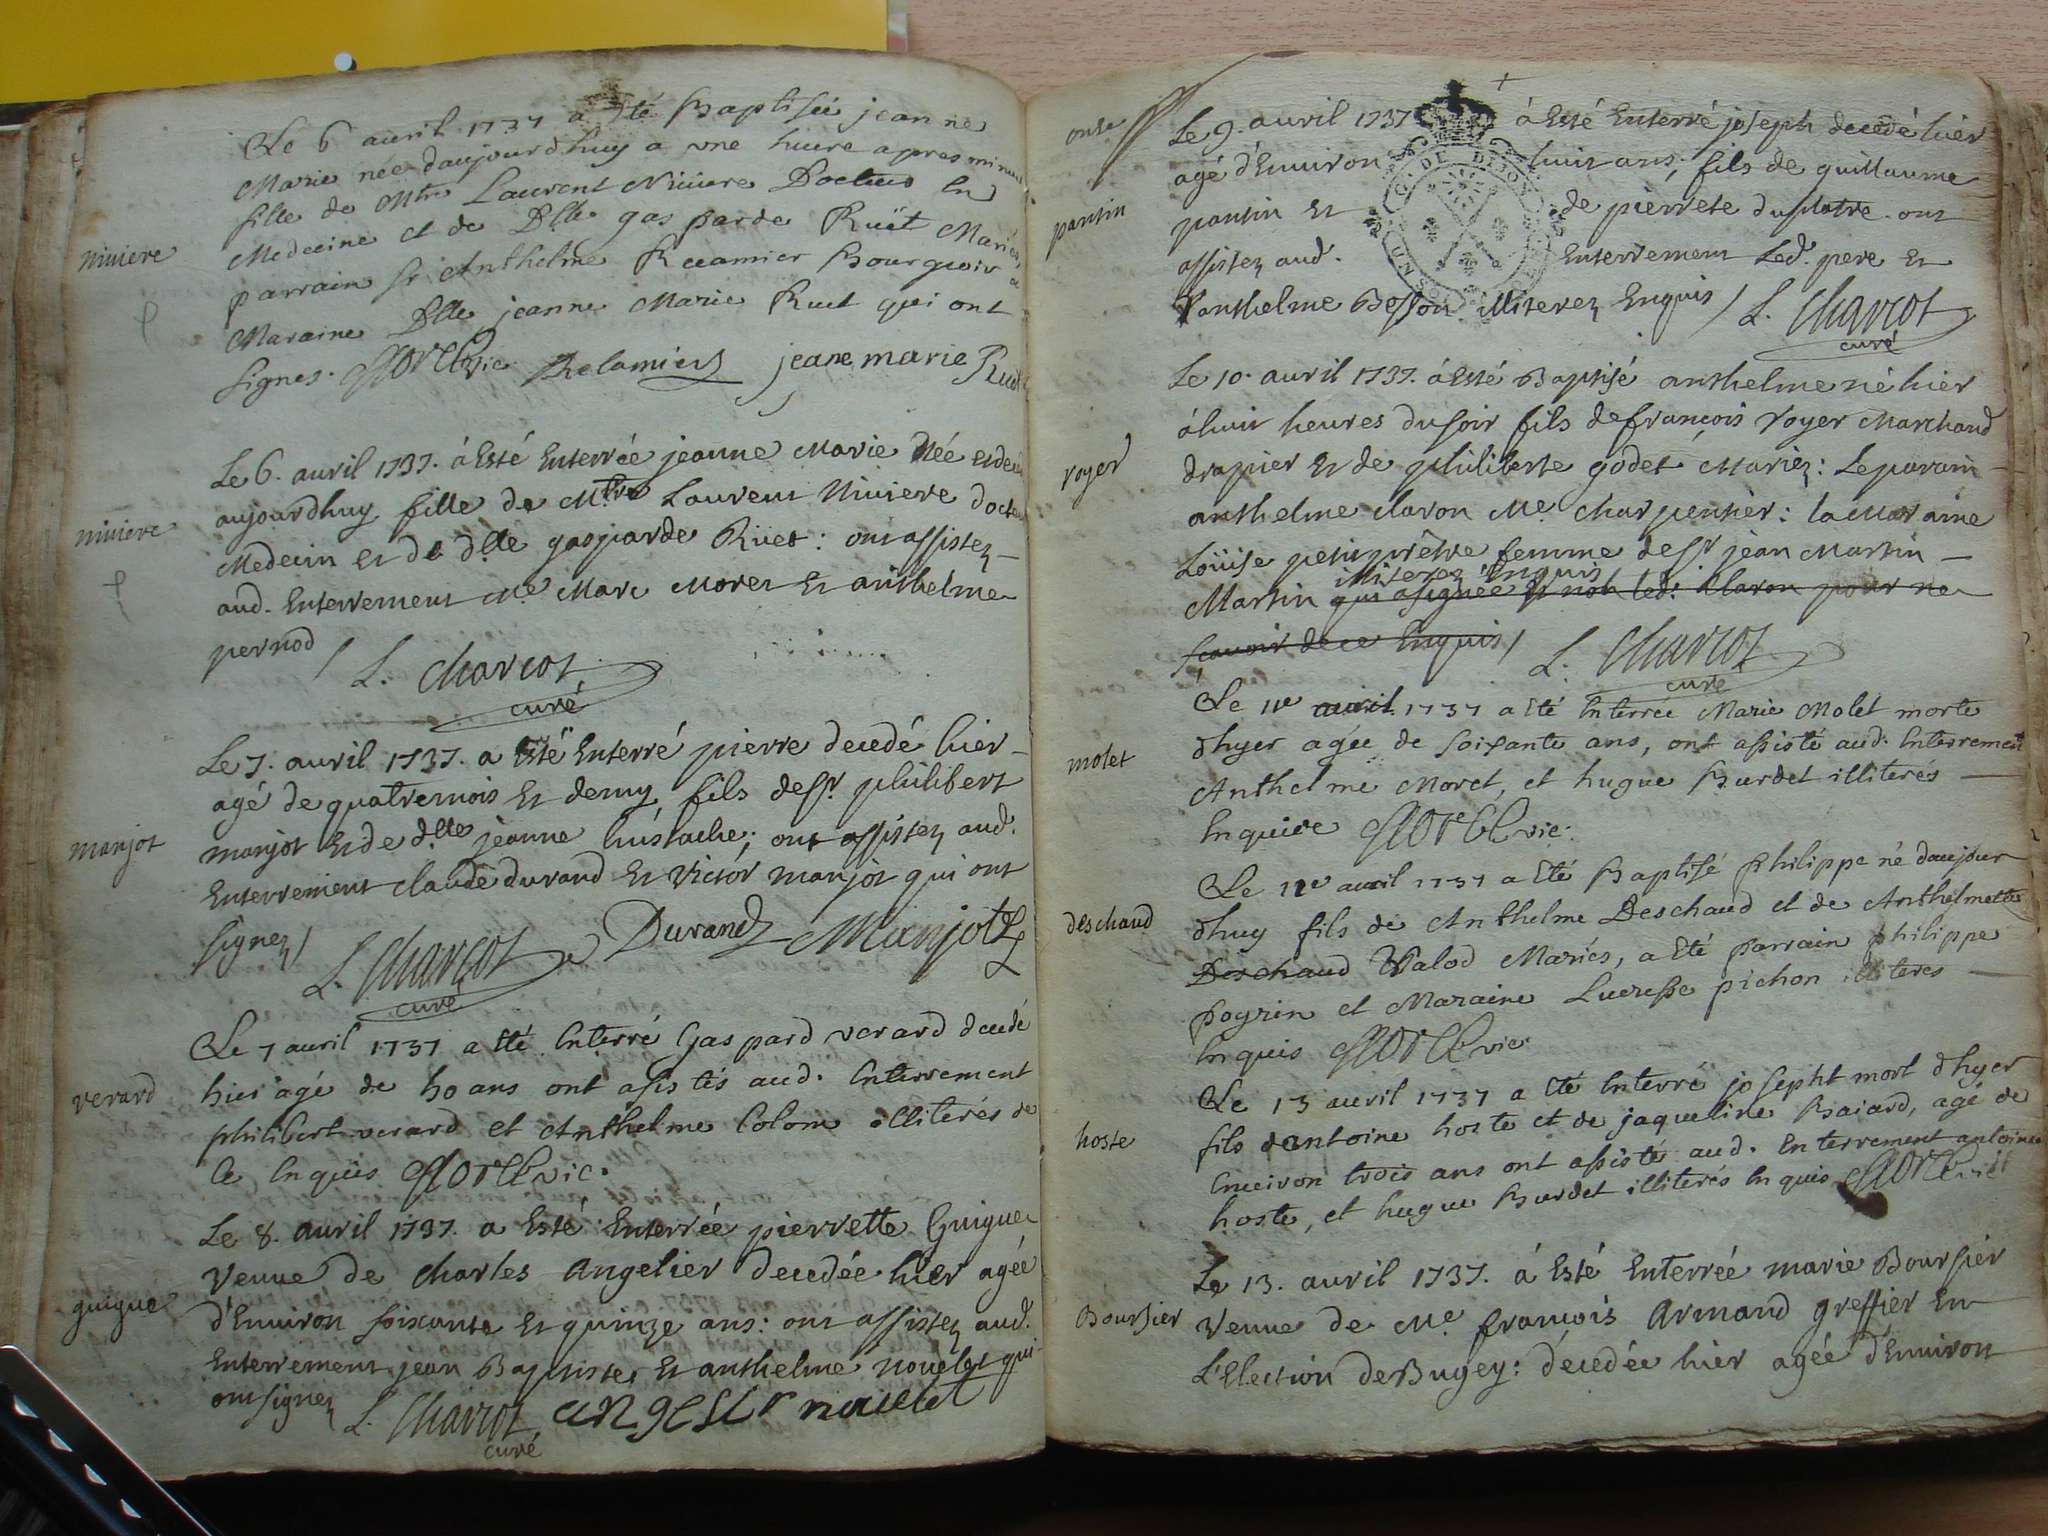 Le 6 auril 1737 a été Baptisée jeanne
Marie née daujourdhuy a une heure apres minuit
fille de Mtre Laurent Niuiere Docteur En
Medecine et de Dlle gasparde Ruët Mariés,
parrain Sr Anthelme Recamier Bourgeois &
Maraine Dlle jeanne Marie Ruet qui ont
signes. vic. Recamier jeane marie Ruet
niuiere
Le 6. auril 1737. á Esté Enterrée jeanne Marie Née et
aujourdhuy fille de Mtre Laurens Niuiere docteur
Medecin et de dlle gasparde Rüet: ont assistez
aud. Enterrement Me Marc Moret et anthelme
pernod / L. Charcot
curé
niuiere
Le 7. auril 1737. a Esté Enterré pierre decedé hier
agé de quatre mois et demy, fils de Sr. philibert
manjot et de dlle jeanne Eustache; ont assistez aud.
Enterrement claude durand et victor manjot qui ont
signez / L. Charcot Durand Manjot
curé
manjot
Le 7 auril 1737 a Eté Enterré Gaspard verard decedé
hier agé de 40 ans ont asistés aud. Enterrement
philibert verard et Anthelme Colom illiterés de
Ce Enquis vic.
verard
Le 8. auril 1737. a Esté Enterrée pierrette Guigue
Veuue de charles Angelier decedée hier agée
d'Enuiron soixante et quinze ans: ont assistez aud.
Enterrement jean Baptiste et anthelme nouelet qui
ont signez L. Charcot angelier nouelet
curé
guigue
onze
Le 9. auril 1737 á Esté Enterré joseph decedé hier
agé d'Enuiron huit ans, fils de guillaume
pantin et de pierrete duplatre. ont
assistez aud. Enterrement Led. pere et
anthelme Besson illiterez Enquis / L. Charcot
curé
pantin
G. DE DIJON
Le 10. auril 1737. á Esté Baptisé anthelme né hier
á huit heures du soir fils de françois Royer Marchand
drapier et de philiberte godet Mariez: Le parain
anthelme claron Me. Charpentier: la Maraine
Loüise petitprêtre femme de Sr jean Martin
illiterez Enquis
Martin qui a signée et non led. Claron pour ne
sçauoir de ce Enquis / L. Charcot
curé
royer
Le 11e auril 1737 a Eté Enterrée Marie Molet morte
dhyer agée de soixante ans, ont assisté aud. Enterrement
Anthelme Moret, et hugue Burdet illiterés
Enquire vic.
molet
Le 12e auril 1737 a Eté Baptisé Philippe né daujour
dhuy fils de Anthelme Deschaud et de Anthelmette
Deschaud Valod Mariés, a Eté parrain philippe
pogrin et Maraine Lucresse pichon illiteres
Enquis vic.
deschaud
Le 13 auril 1737 a Eté Enterré josepht mort dhyer
fils dantoine hoste et de jaqueline Baiard, agé de
Enuiron trois ans ont assisté aud. Enterrement antoine
hoste, et hugue Burdet illiterés Enquis vic
hoste
Le 13. auril 1737. á Esté Enterrée marie Boursier
Veuue de Me. françois Armand greffier En
L'Election de Bugey: décedée hier agée d'Enuiron
Boursier